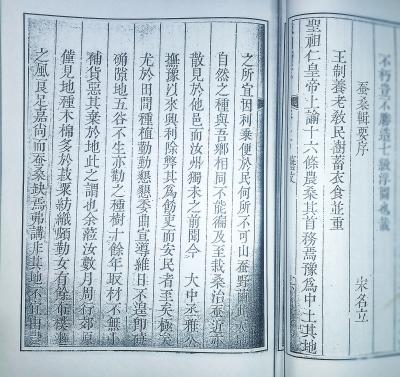 蚕桑輯要序
宋名立
王制養老敎民樹蓄衣食並重
聖祖仁皇帝上諭十六條農桑其首務焉豫為中土其地
之所宜因利乘便於民何所不可山蚕野繭此天地
自然之種與吾鄉相同不能徧及至栽桑治蚕近亦
散見於他邑而汝州獨未之前聞今　大中丞雅公
撫豫以來興利除弊其為飭吏而安民者至矣極矣
尤於田間種植勤勤懇懇委曲宣導維日不遑卽磽
确隙地五谷不生亦勸之種樹十餘年取材不無小
補貨惡其棄於地此之謂也余蒞汝數月周行郊原
僅見地種木棉多於菽粟紡織頗勤女有餘布樸
之風良足嘉尙而蚕桑缺焉弗講非其地不宜由